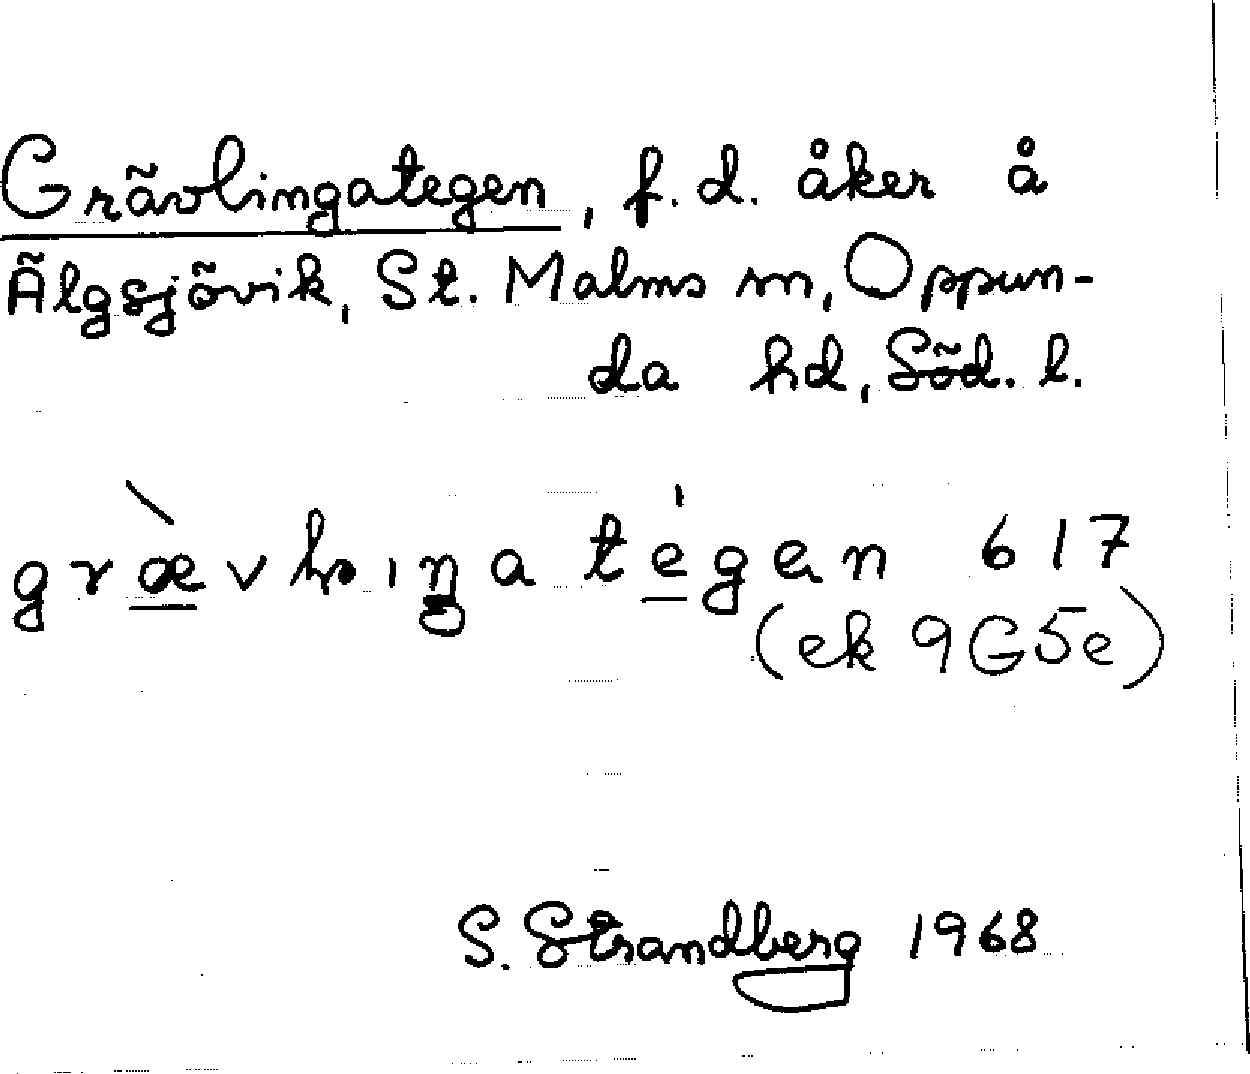 Grävlingategen, f.d. åker å
Älgsjövik, St. Malms sn, Oppun-
da hd, Söd. l.
græ̀vlıŋa tégen 617
(ek 9G5e)
S. Strandberg 1968